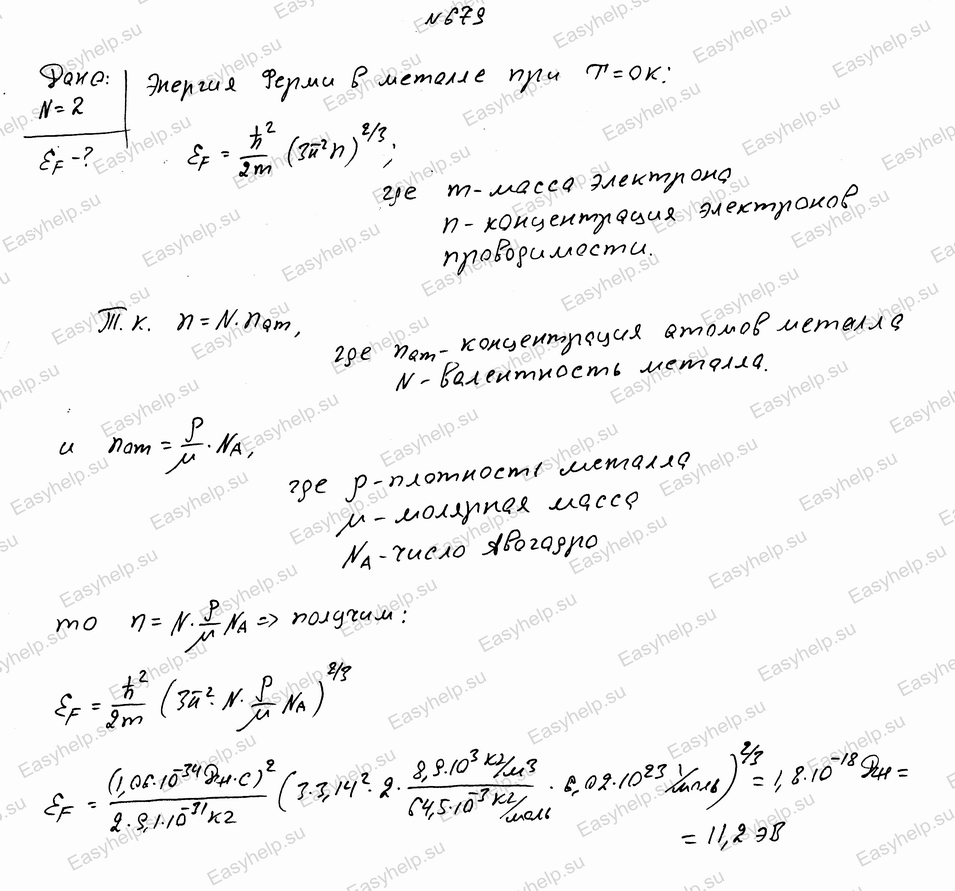 №679
Дано:
N=2
ε_F -?
Энергия Ферми в металле при T=0К:
ε_F = ħ²/2m (3π²n)^2/3;
где m-масса электрона
n-концентрация электронов
проводимости.
Т.к. n=N·nат,
где nат-концентрация атомов металла
N-валентность металла.
и nат = ρ/μ · N_A,
где ρ-плотность металла
μ-молярная масса
N_A-число Авогадро
то n= N·ρ/μ N_A => получим:
ε_F = ħ²/2m (3π²·N·ρ/μ N_A)^2/3
ε_F = (1,06·10⁻³⁴Дж·с)²/2·9,1·10⁻³¹кг (3·3,14²·2·8,9·10³кг/м3/64,5·10⁻³кг/моль · 6,02·10²³ 1/моль)^2/3 = 1,8·10⁻¹⁸Дж =
= 11,2 эВ
Easyhelp.su